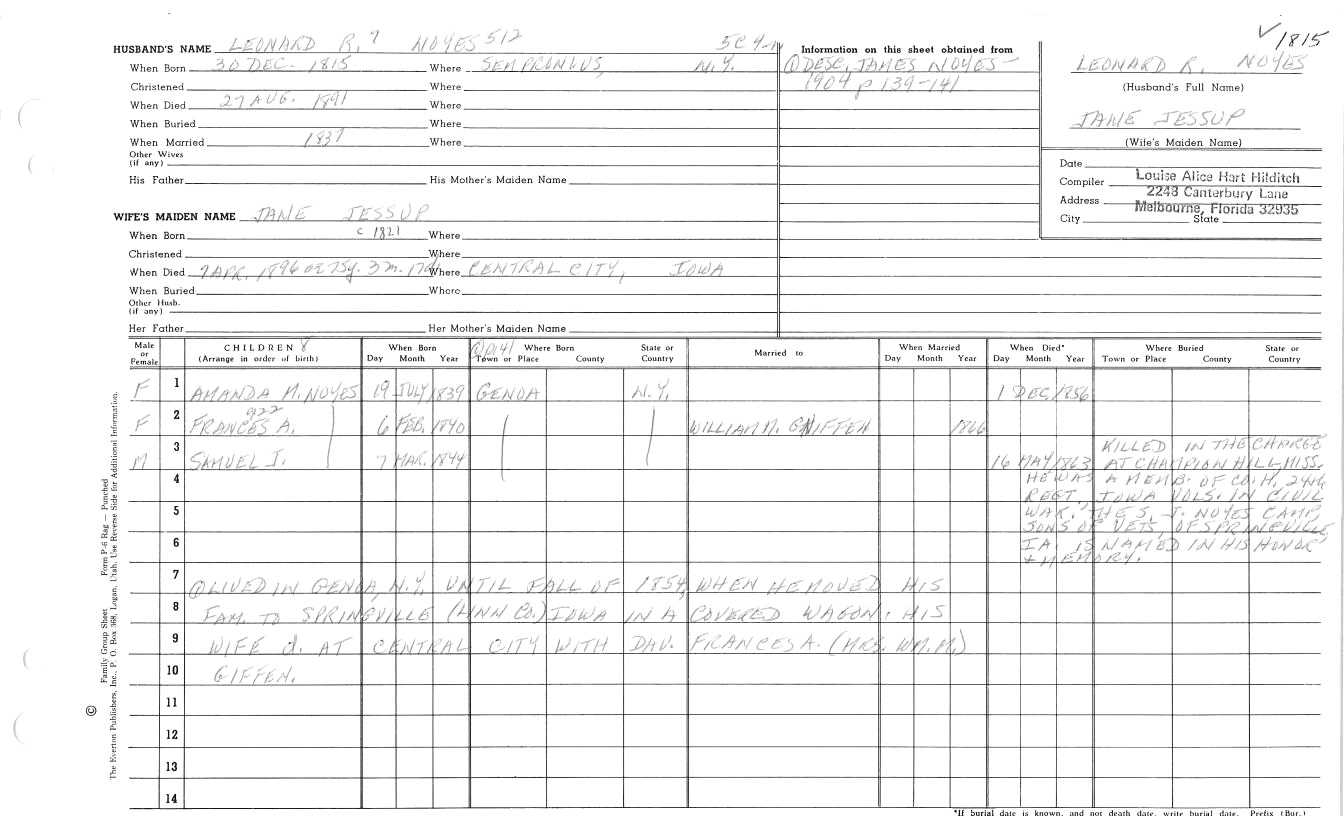 ✓ 1815
HUSBAND'S NAME LEONARD R.7 NOYES 512 5C4-14
When Born 30 DEC. 1815 Where SEMPRONIUS, N.Y.
Christened Where
When Died 27 AUG. 1891 Where
When Buried Where
When Married 1837 Where
Other Wives
(if any)
His Father His Mother's Maiden Name
Information on this sheet obtained from
① DESC. JAMES NOYES -
1904 p 139-141
LEONARD R. NOYES
(Husband's Full Name)
JANE JESSUP
(Wife's Maiden Name)
Date
Compiler Louise Alice Hart Hilditch
Address 2248 Canterbury Lane
Melbourne, Florida 32935
City State
WIFE'S MAIDEN NAME JANE JESSUP
When Born c 1821 Where
Christened Where
When Died 7 APR. 1896 ae 75y. 3m. 17d. Where CENTRAL CITY, IOWA
When Buried Where
Other Husb.
(if any)
Her Father Her Mother's Maiden Name
Male or Female CHILDREN 8 (Arrange in order of birth) When Born Day Month Year ① p141 Where Born Town or Place County State or Country Married to When Married Day Month Year When Died* Day Month Year Where Buried Town or Place County State or Country
F 1 AMANDA M. NOYES 19 JULY 1839 GENOA N.Y. 1 DEC. 1856
922
F 2 FRANCES A. 6 FEB. 1840 WILLIAM M. GNIFFEN 1866
M 3 SAMUEL J. 7 MAR. 1844 16 MAY 1863 KILLED IN THE CHARGE
AT CHAMPION HILL, MISS.
4 HE WAS A MEMB. OF CO. H, 24th
REGT. IOWA VOLS. IN CIVIL
5 WAR. THE S. J. NOYES CAMP,
SONS OF VETS, OF SPRINGVILLE,
6 IA. IS NAMED IN HIS HONOR
+ MEMORY.
7 ① LIVED IN GENOA, N.Y. UNTIL FALL OF 1854, WHEN HE MOVED HIS
8 FAM. TO SPRINGVILLE (LINN CO.) IOWA IN A COVERED WAGON. HIS
9 WIFE d. AT CENTRAL CITY WITH DAU. FRANCES A. (MRS. WM. M.)
10 GIFFEN.
11
12
13
14
*If burial date is known, and not death date, write burial date. Prefix (Bur.)
© Family Group Sheet Form P-6 Rag — Punched
The Everton Publishers, Inc., P. O. Box 368, Logan, Utah. Use Reverse Side for Additional Information.